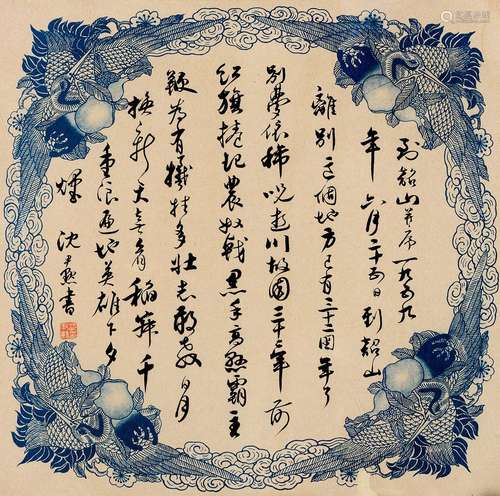 到韶山并序一九五九
年六月二十五日到韶山
離別这個地方已有三十二周年了
別夢依稀咒逝川故園三十二年前
红旗捲起農奴戟黑手高懸霸主
鞭為有犧牲多壮志敢教日月
換新天喜看稻菽千
重浪遍地英雄下夕
煙 沈尹默書